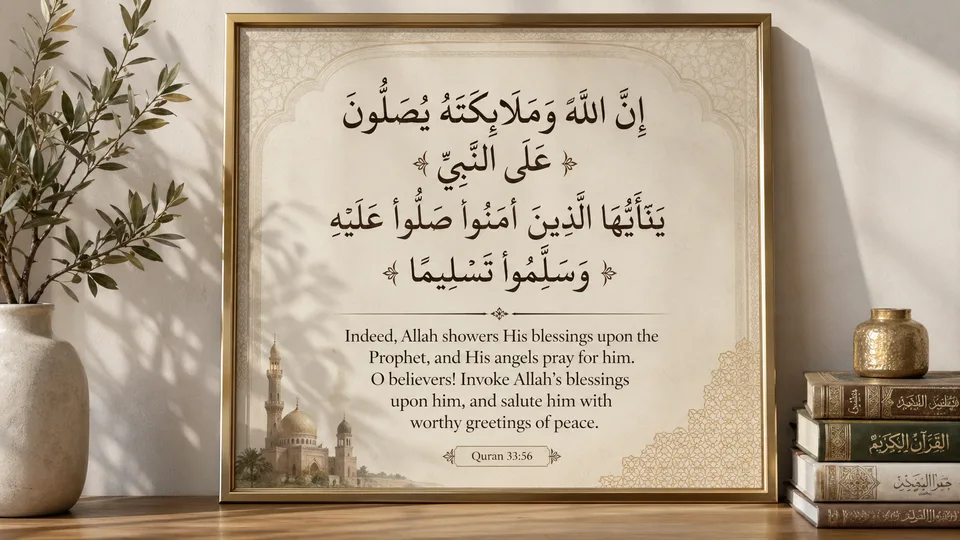 إِنَّ اللَّهَ وَمَلَائِكَتَهُ يُصَلُّونَ
عَلَى النَّبِيِّ
يَنَّأَيُّهَا الَّذِينَ أمَنُوأ صَلُّوأ عَلَيْهِ
وَسَلَّمُوأ تَسْلِيمًا
Indeed, Allah showers His blessings upon the
Prophet, and His angels pray for him.
O believers! Invoke Allah’s blessings
upon him, and salute him with
worthy greetings of peace.
Quran 33:56
القرآن الكريم